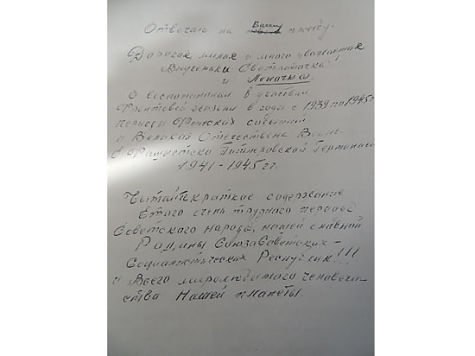 Отвечаю на Вашу
Дорогая милая и много уважаемая
Внученька Светланочка!
и
О воспоминаний в участии
Фронтовой жизни в годы с 1939 по 1945г
период Финских событий
и Великая Отечествена Война
с Фашистка Гитлеровской Германией
1941-1945гг.
Чытайткраткие содержание
Етого очень трудного период
Советского народа, нашей славной
Радины Союза Советских-
Социалистических Республик!!!
и Всего миролюбивого человече-
ства Нашей планеты